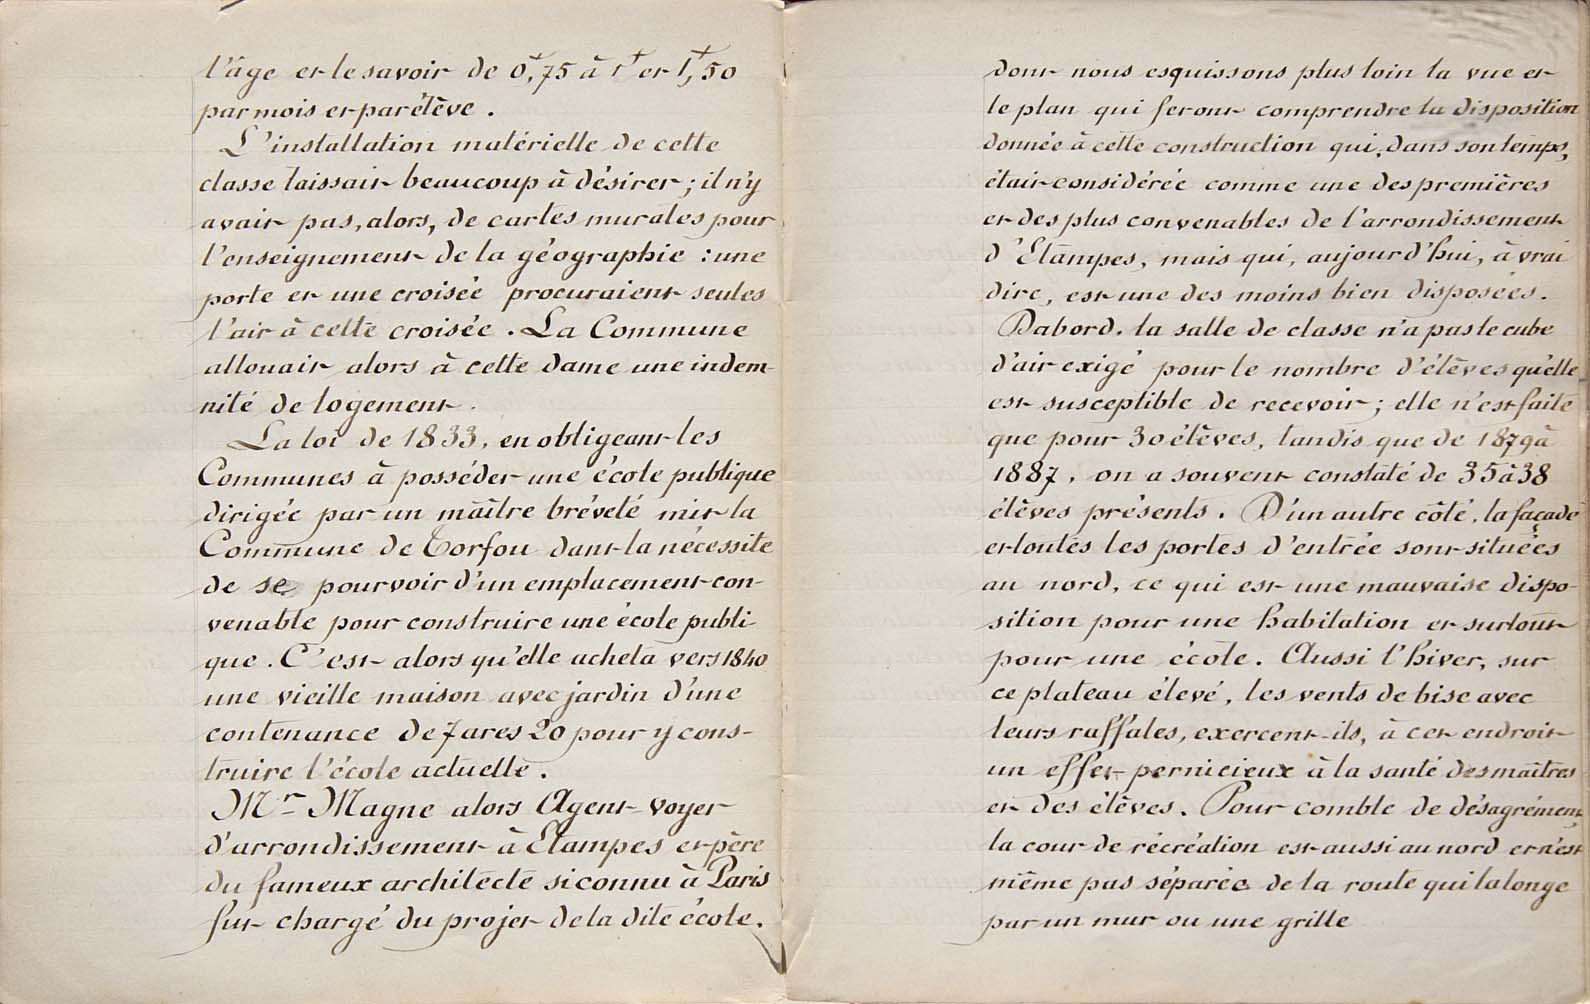 l'âge et le savoir de 0f,75 à 1f et 1f,50
par mois et par élève.
L'installation matérielle de cette
classe laissait beaucoup à désirer ; il n'y
avait pas, alors, de cartes murales pour
l'enseignement de la géographie : une
porte et une croisée procuraient seules
l'air à cette croisée. La Commune
allouait alors à cette dame une indem-
nité de logement.
La loi de 1833, en obligeant les
Communes à posséder une école publique
dirigée par un maître bréveté mit la
Commune de Torfou dans la nécessité
de se pourvoir d'un emplacement con-
venable pour construire une école publi-
que. C'est alors qu'elle acheta vers 1840
une vieille maison avec jardin d'une
contenance de 7 ares 20 pour y cons-
truire l'école actuelle.
Mr Magne alors Agent-voyer
d'arrondissement à Etampes et père
du fameux architecte si connu à Paris
fut chargé du projet de la dite école.
dont nous esquissons plus loin la vue et
le plan qui feront comprendre la disposition
donnée à cette construction qui, dans son temps,
était considérée comme une des premières
et des plus convenables de l'arrondissement
d'Etampes, mais qui, aujourd'hui, à vrai
dire, est une des moins bien disposées.
D'abord, la salle de classe n'a pas le cube
d'air exigé pour le nombre d'élèves qu'elle
est susceptible de recevoir ; elle n'est faite
que pour 30 élèves, tandis que de 1879 à
1887, on a souvent constaté de 35 à 38
élèves présents. D'un autre côté, la façade
et toutes les portes d'entrée sont situées
au nord, ce qui est une mauvaise dispo-
sition pour une habitation et surtout
pour une école. Aussi l'hiver, sur
ce plateau élevé, les vents de bise avec
leurs raffales, exercent-ils, à cet endroit
un effet pernicieux à la santé des maîtres
et des élèves. Pour comble de désagrément,
la cour de récréation est aussi au nord et n'est
même pas séparée de la route qui la longe
par un mur ou une grille